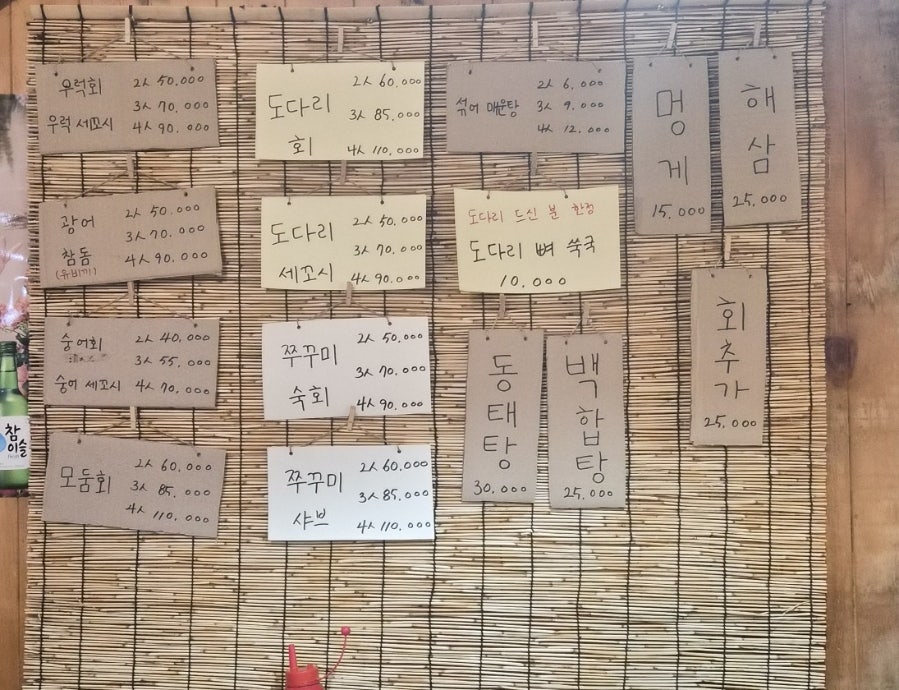 우럭회 2人 50.000
3人 70.000
우럭 세꼬시 4人 90.000
광어 2人 50.000
3人 70.000
참돔 4人 90.000
(유비끼)
숭어회 2人 40.000
3人 55.000
숭어 세꼬시 4人 70.000
모둠회 2人 60.000
3人 85.000
4人 110.000
도다리 2人 60.000
3人 85.000
회 4人 110.000
도다리 2人 50.000
3人 70.000
세꼬시 4人 90.000
쭈꾸미 2人 50.000
3人 70.000
숙회 4人 90.000
쭈꾸미 2人 60.000
3人 85.000
샤브 4人 110.000
섞어 매운탕 2人 6.000
3人 9.000
4人 12.000
도다리 드신 분 한정
도다리 뼈 쑥국
10.000
동태탕
30.000
백합탕
25.000
멍게
15.000
해삼
25.000
회추가
25.000
참
이슬